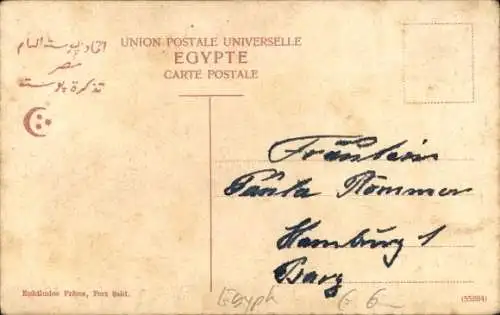 اتحاد پوسته العام
مصر
تذكرة پوسته
UNION POSTALE UNIVERSELLE
EGYPTE
CARTE POSTALE
Fräulein
Paula Römmer
Hamburg 1
Ephtimios Frères, Port Saïd.
Egypt
€ 6-
(55294)